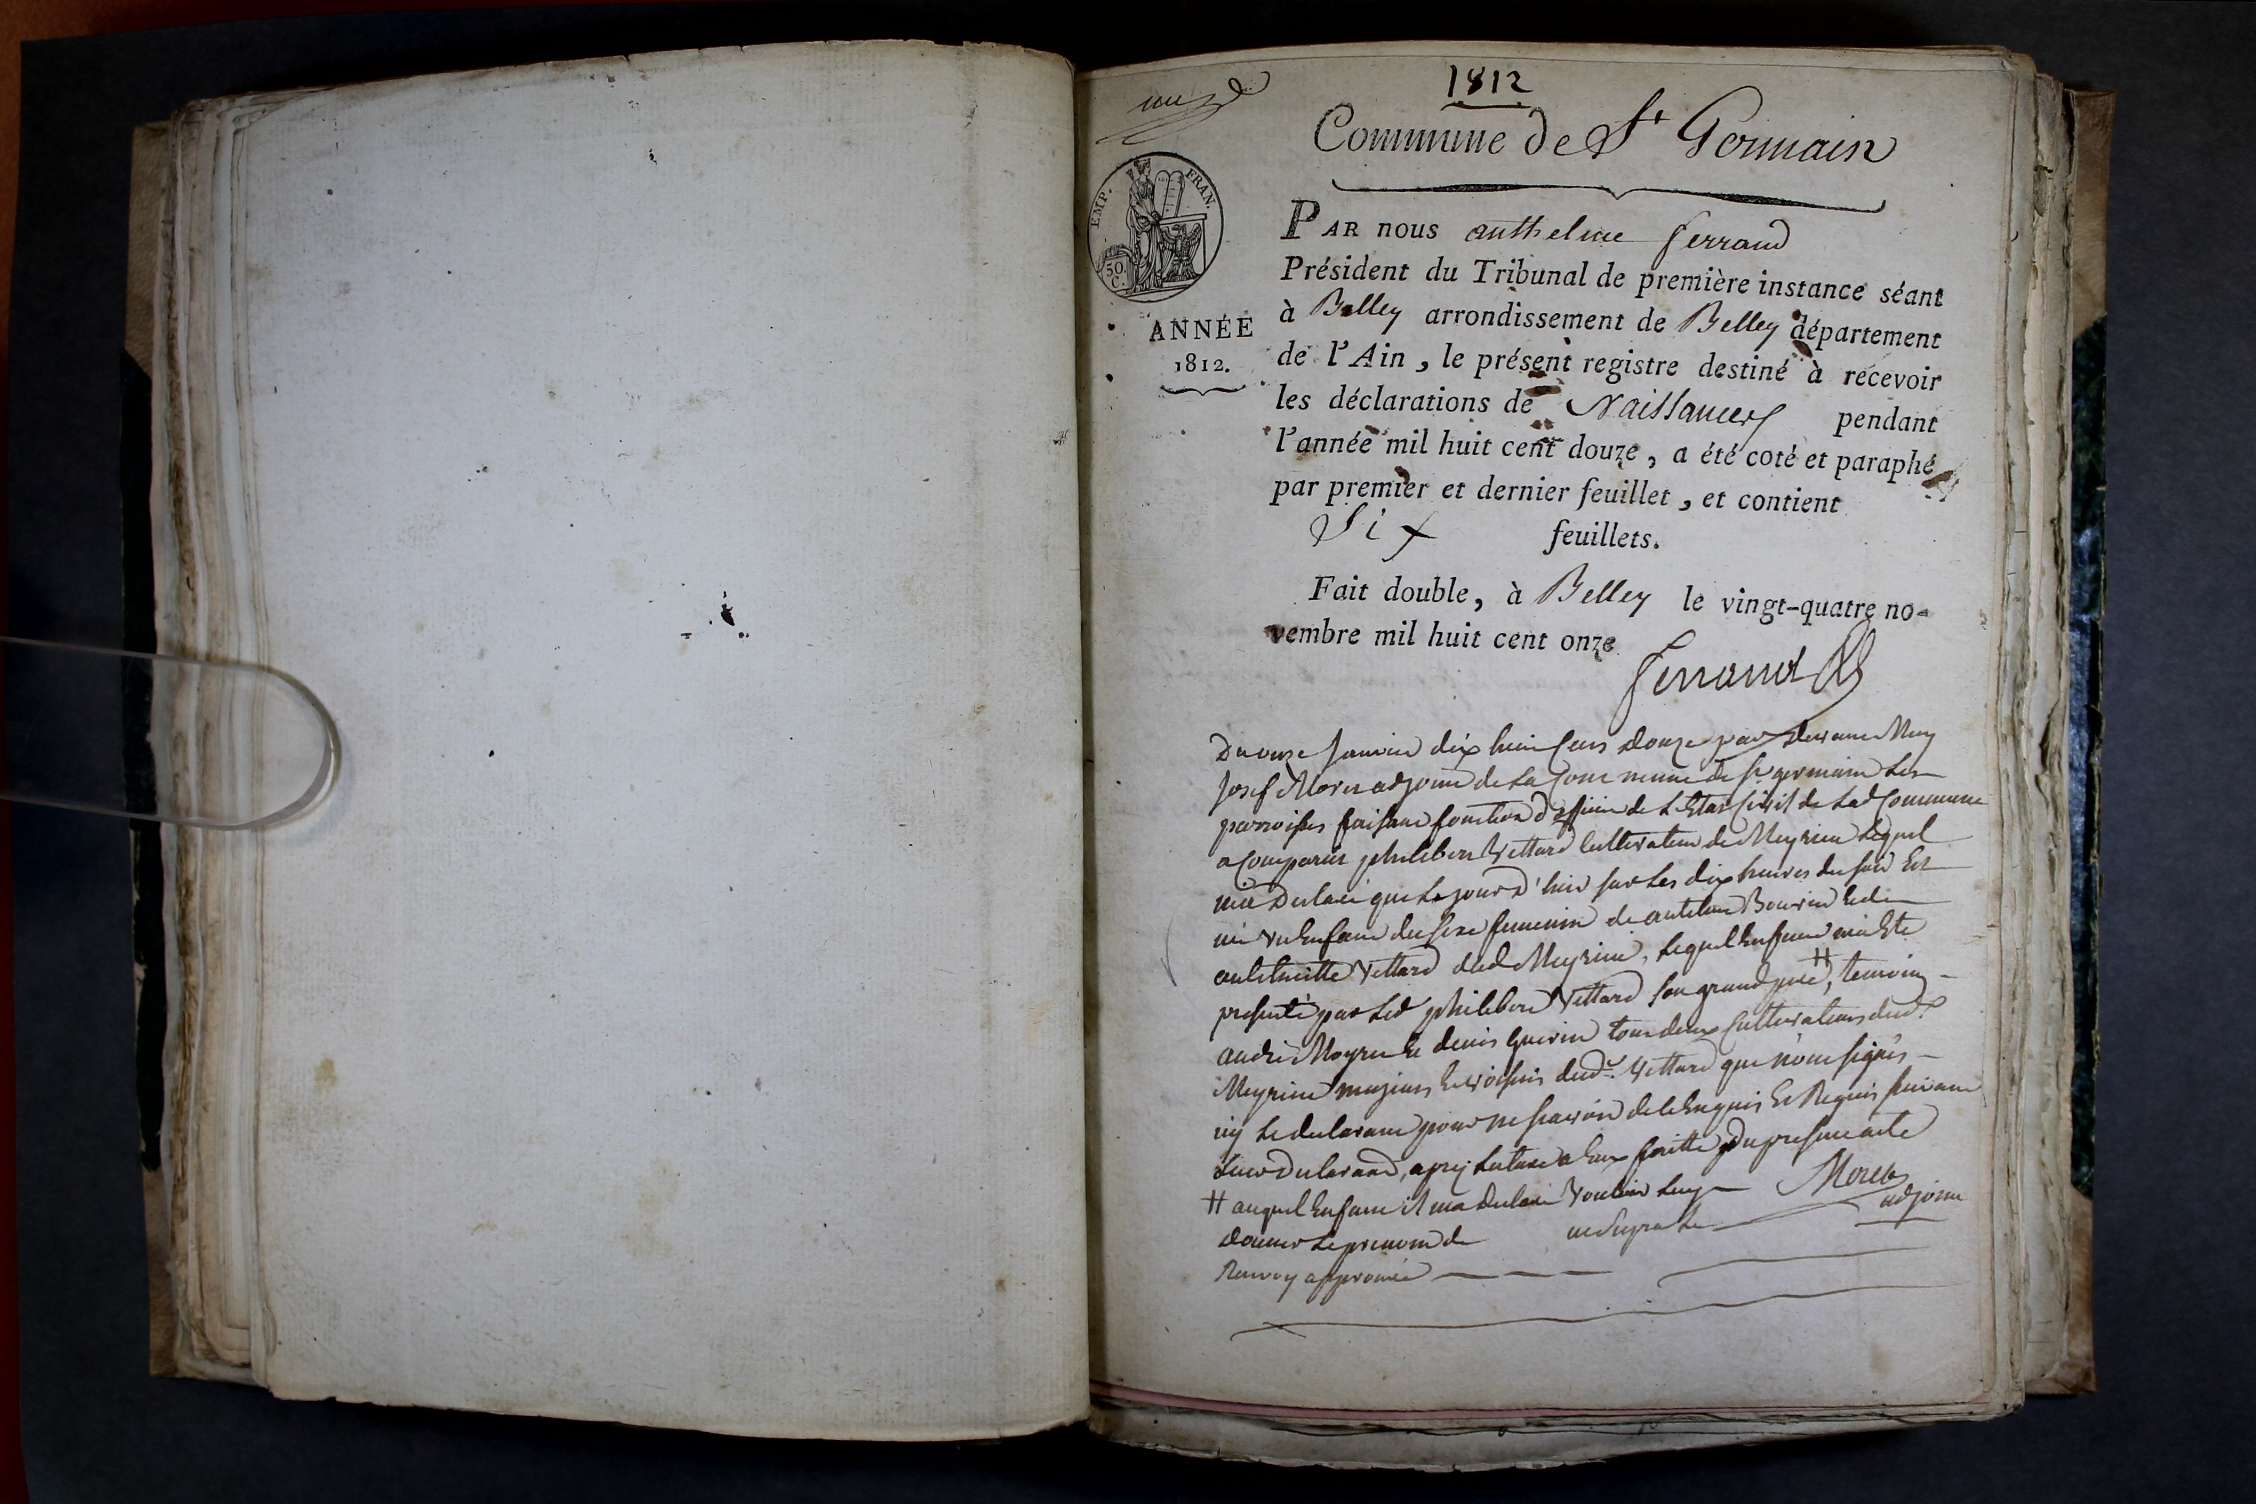 1812
Commune de St Germain
EMP. FRAN.
50. C.
ANNÉE
1812.
PAR nous anthelme ferrand
Président du Tribunal de première instance séant
à Belley arrondissement de Belley département
de l'Ain, le présent registre destiné à recevoir
les déclarations de Naissances pendant
l'année mil huit cent douze, a été coté et paraphé
par premier et dernier feuillet, et contient
Six feuillets.
Fait double, à Belley le vingt-quatre no-
vembre mil huit cent onze
ferrand
Du onze Janvier dix huit Cens douze par devant Moy
Josef Moret adjoint de la Commune de st germain les
parroisses faisant fonction d'officier de L'Etat Civil de lad Commune
a Comparut philebert Vettard Cultivateur de Meyrieu lequel
m'a Declaré que le jour d'hier sur les dix heures du soir Est
né un Enfant du sexe feminin de antelme Bouvier Et de
Vettard dud Meyrieu, lequel Enfant m'a Eté
presenté par led philebert Vettard son grand pere #, temoins
andré et denis guerin tout deux Cultivateurs dud
Meyrieu majeurs Et voisins dud Vettard que n'ont signés
ny le declarant pour ne scavoir de ce Enquis Et Requis suivant
leur Declaration, apres lecture a Eux faitte du present acte
# auquel Enfant il m'a Declaré Vouloir luy
donner le prenom de
Moret
adjoint
Renvoy approuvé